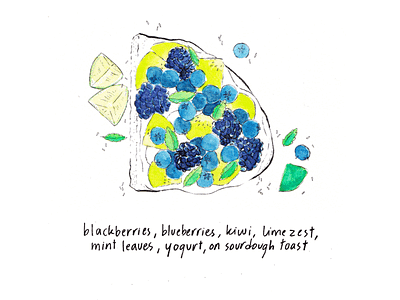 blackberries, blueberries, kiwi, lime zest,
mint leaves, yogurt, on sourdough toast